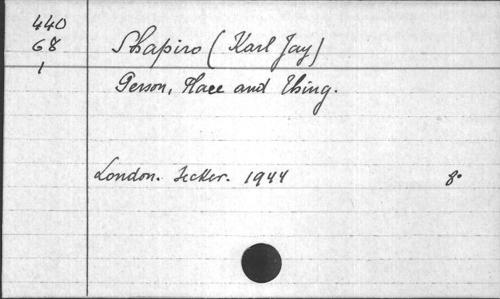 440
68
1
Shapiro (Karl Jay)
Person, Place and Thing.
London. Secker. 1944 8°